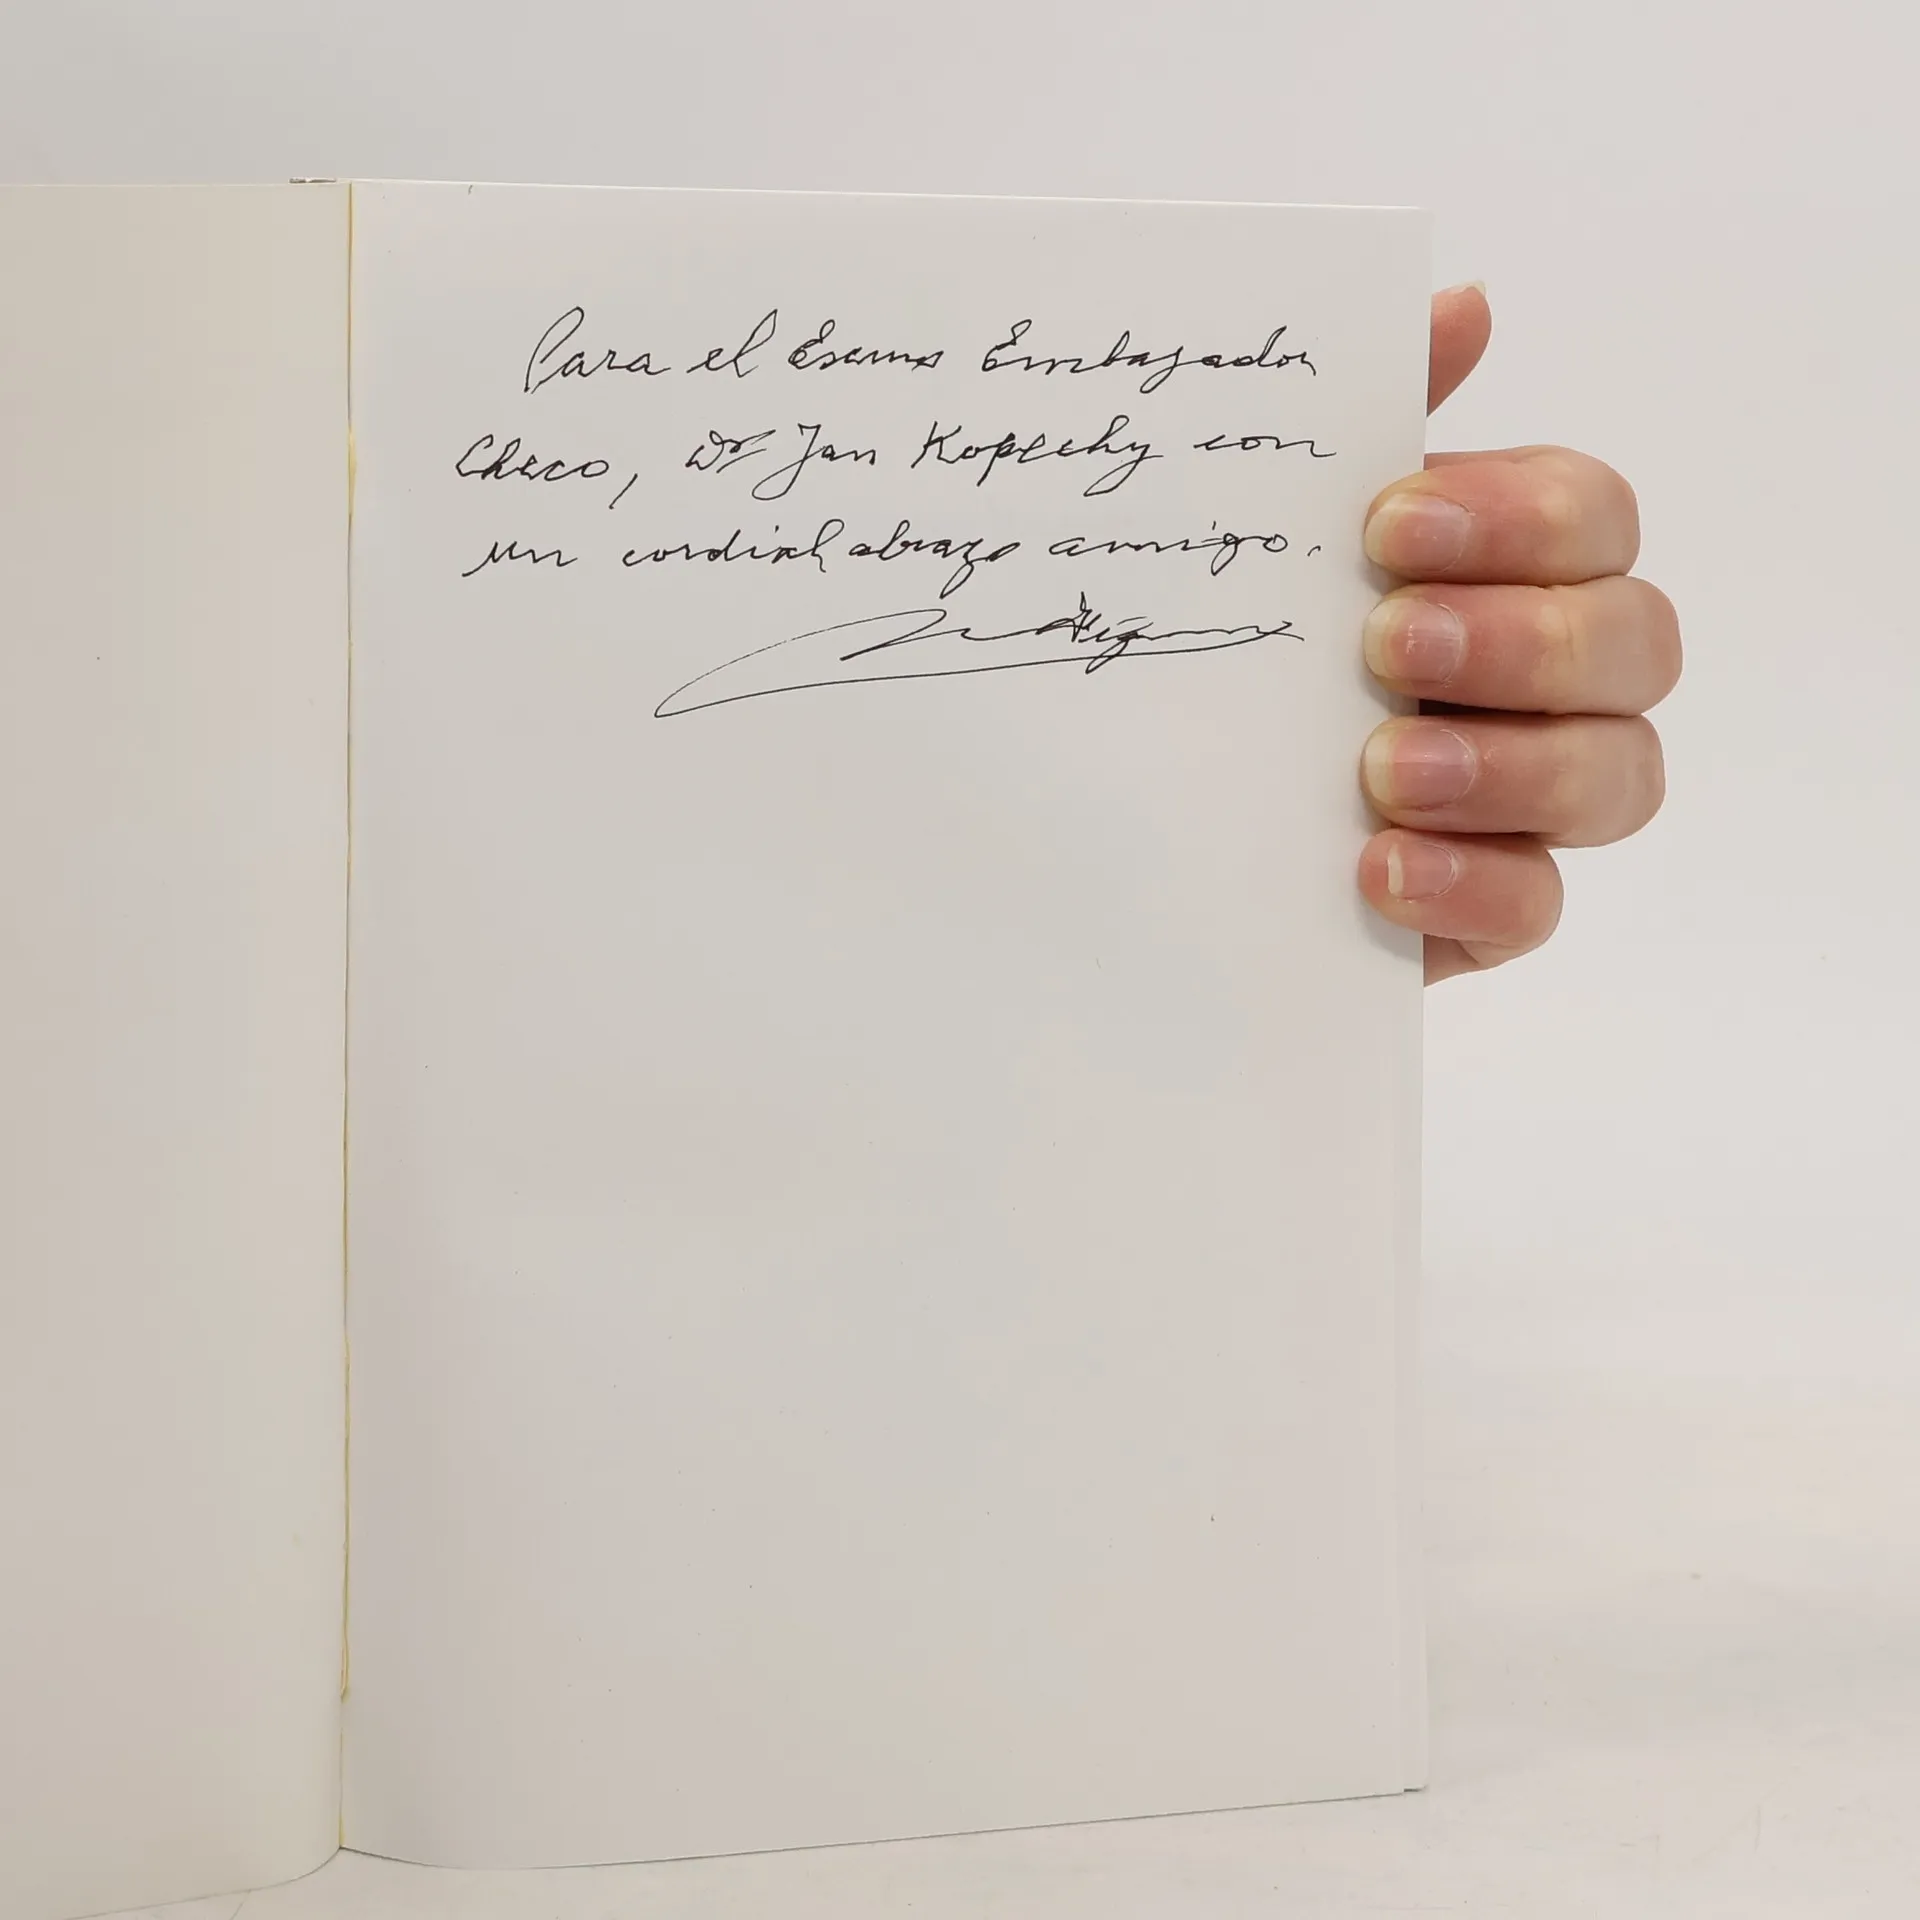 Para el Excmo Embajador
Checo, Dr Jan Kopecky con
un cordial abrazo amigo.